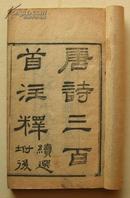 唐詩三百
首注釋
續選
坿後